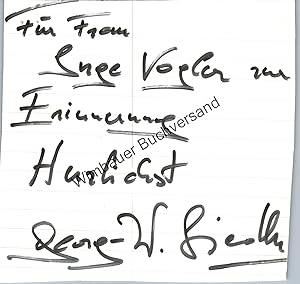 Für Frau
Inge Vogler zur
Erinnerung
Herzlichst
Georg-W.
Wimbauer Buchversand